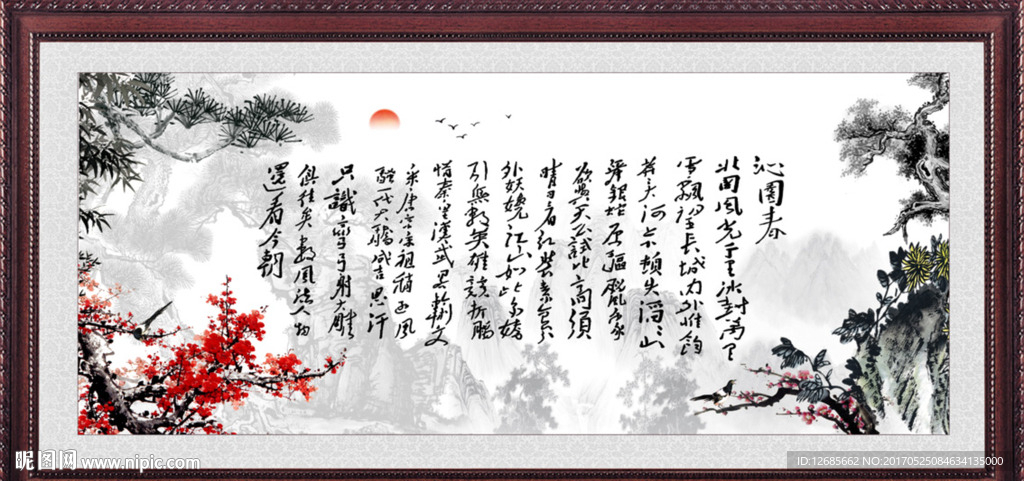 沁園春
北國風光千里冰封萬里
雪飄望長城內外惟餘
莽大河上下頓失滔〻山
舞銀蛇原驅臘象
欲與天公試比高須
晴日看紅裝素裹分
外妖嬈江山如此多嬌
引無數英雄競折腰
惜秦皇漢武略輸文
采唐宗宋祖稍遜風
騷一代天驕成吉思汗
只識彎弓射大雕
俱往矣數風流人物
還看今朝
昵图网 www.nipic.com
ID:12685662 NO:20170525084634135000